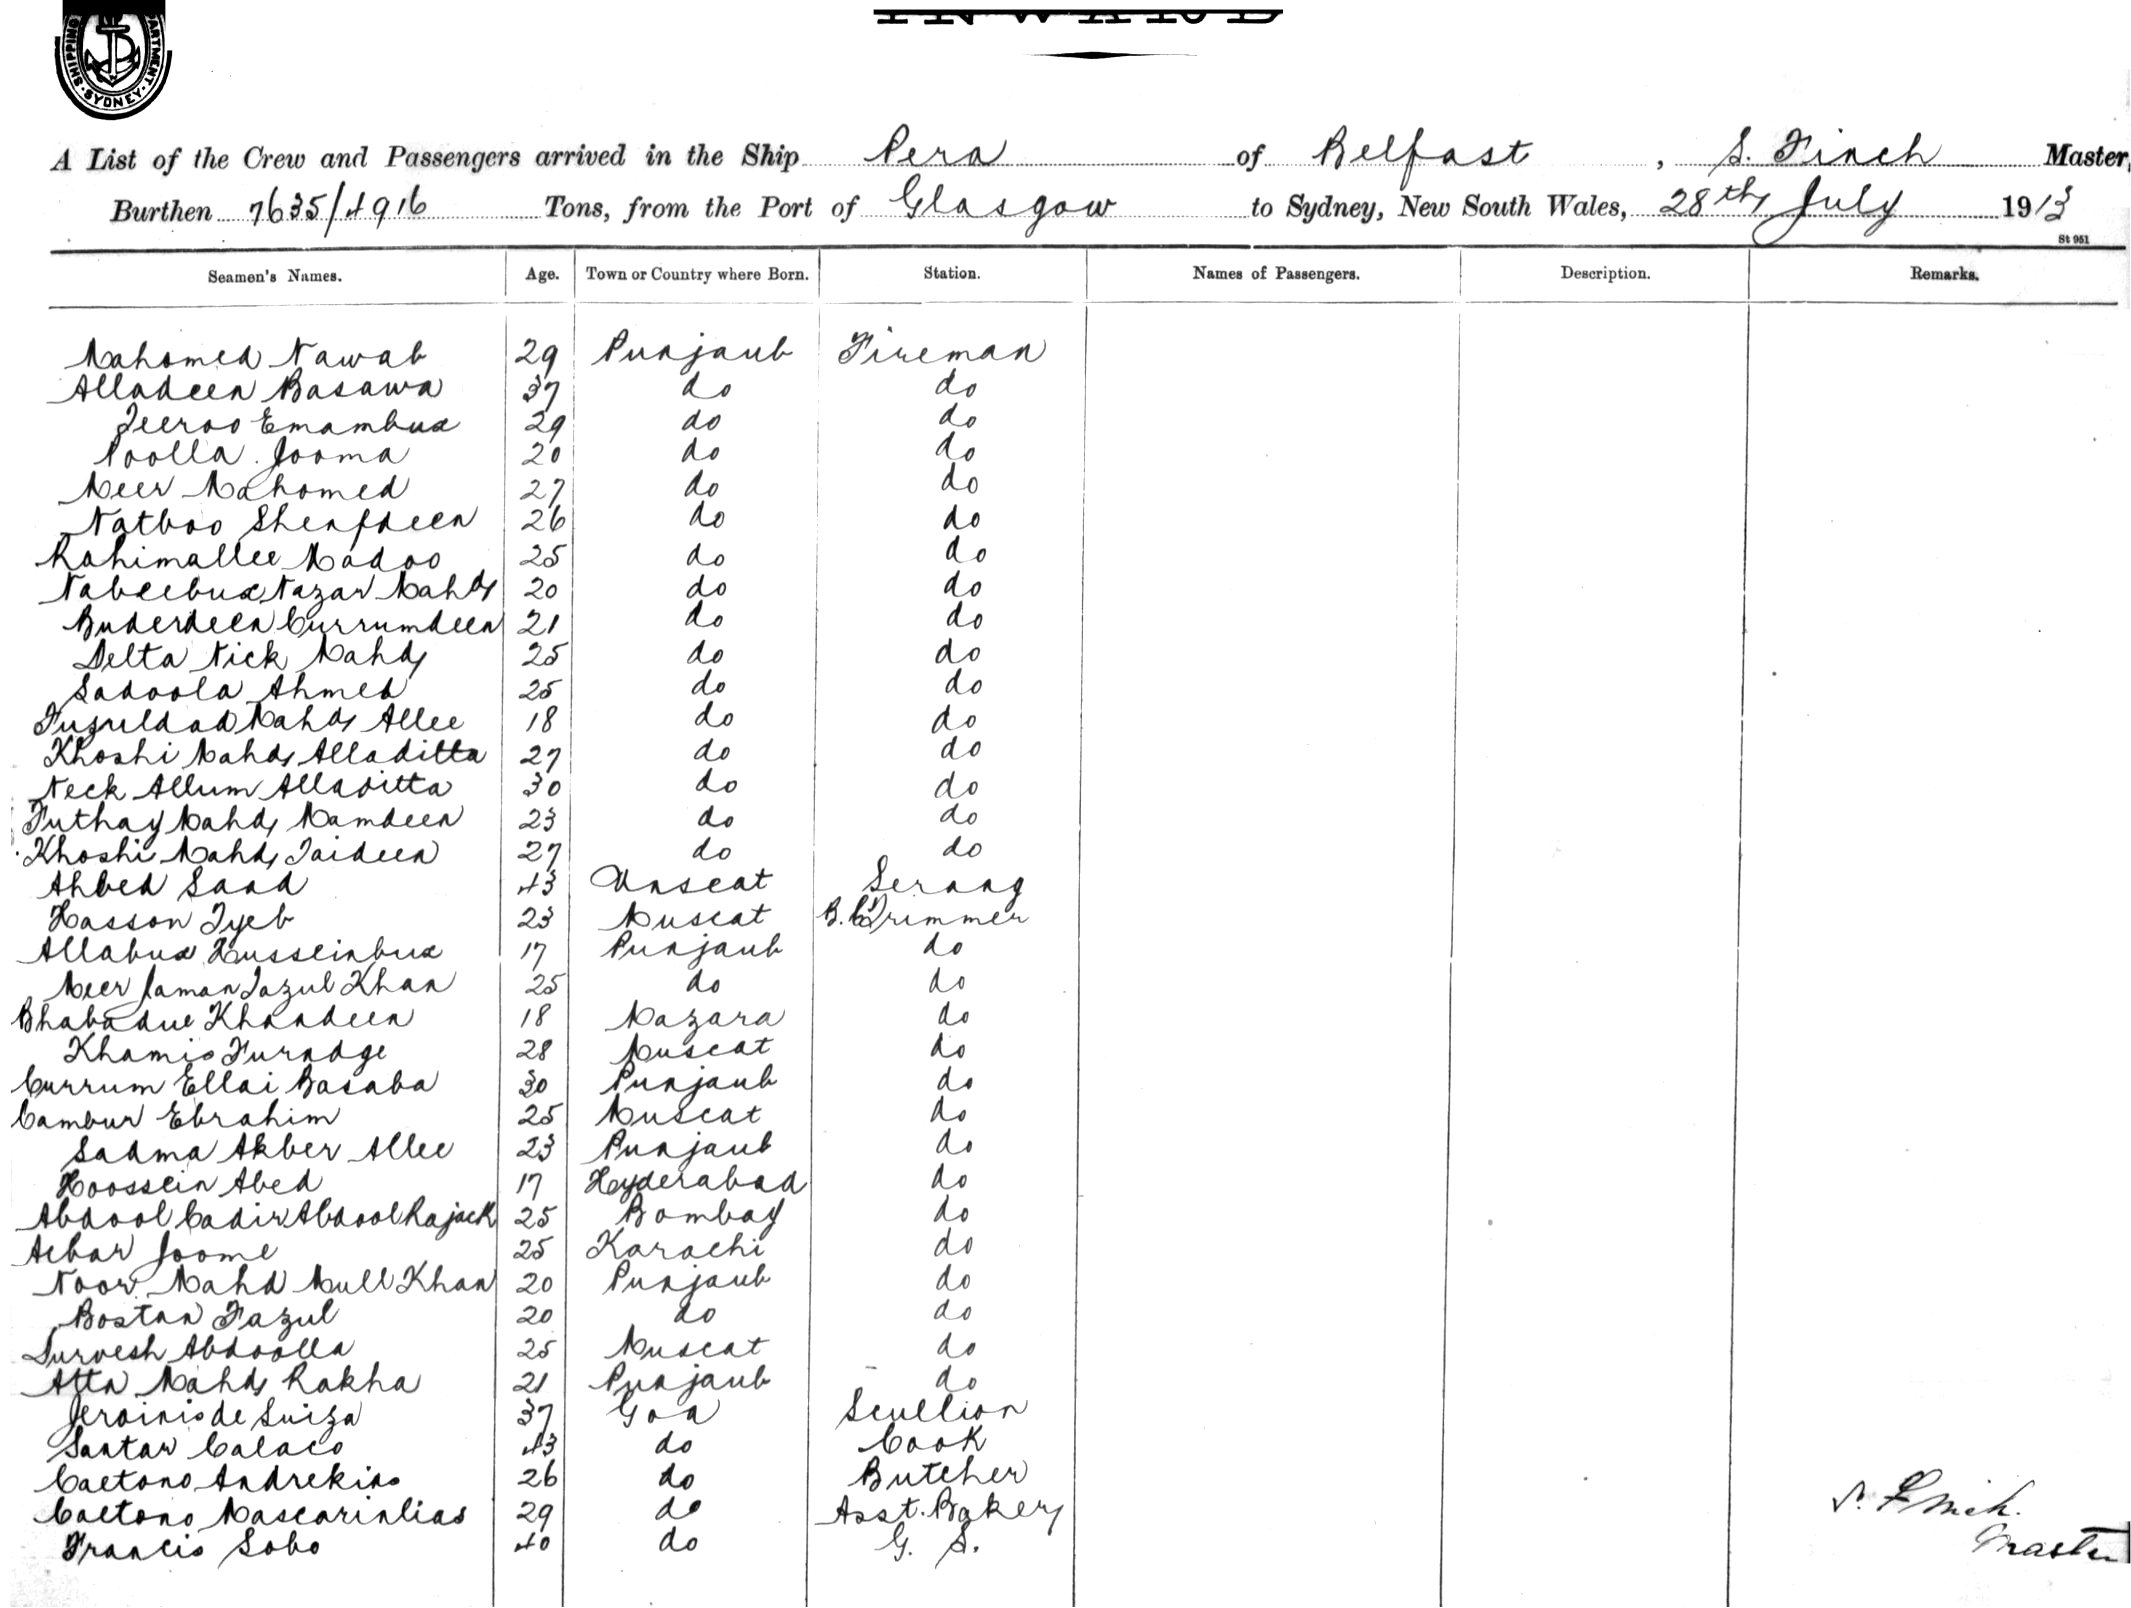 SHIPPING DEPARTMENT SYDNEY
INWARD
A List of the Crew and Passengers arrived in the Ship Pera of Belfast, S. Finch Master,
Burthen 7635/4916 Tons, from the Port of Glasgow to Sydney, New South Wales, 28th July 1913
St 951
Seamen's Names. Age. Town or Country where Born. Station. Names of Passengers. Description. Remarks.
Mahomed Nawab 29 Punjaub Fireman
Alladeen Basawa 37 do do
Jeeroo Emambux 29 do do
Noolla Jooma 20 do do
Meer Mahomed 27 do do
Nathoo Sherfdeen 26 do do
Rahimallee Madoo 25 do do
Nabeebux Nazar Mahd 20 do do
Buderdeen Currumdeen 21 do do
Delta Nick Mahd 25 do do
Sadoola Ahmed 25 do do
Fuzuldad Mahd Allee 18 do do
Khoshi Mahd Alladitta 27 do do
Neck Allum Alladitta 30 do do
Futhay Mahd Mamdeen 23 do do
Khoshi Mahd Jaideen 27 do do
Ahbed Saad 43 Muscat Serang
Hasson Tyeb 23 Muscat B. C. Trimmer
Allabux Husseinbux 17 Punjaub do
Meer Jaman Fazul Khan 25 do do
Bhabadue Khandeen 18 Mazara do
Khamis Furadge 28 Muscat do
Currum Ellai Basaba 30 Punjaub do
Cambur Ebrahim 25 Muscat do
Sadma Akber Allee 23 Punjaub do
Hoossein Abed 17 Hyderabad do
Abdool Cadir Abdool Rajack 25 Bombay do
Acbar Joome 25 Karachi do
Noor Mahd Mull Khan 20 Punjaub do
Bostan Fazul 20 do do
Durvesh Abdoolla 25 Muscat do
Atta Mahd Rakha 21 Punjaub do
Jeroinis de Suiza 37 Goa Scullion
Santar Calaco 43 do Cook
Caetano Andrekias 26 do Butcher
Caetano Mascarinlias 29 do Asst. Baker
Francis Lobo 40 do G. S.
S. Finch.
Master